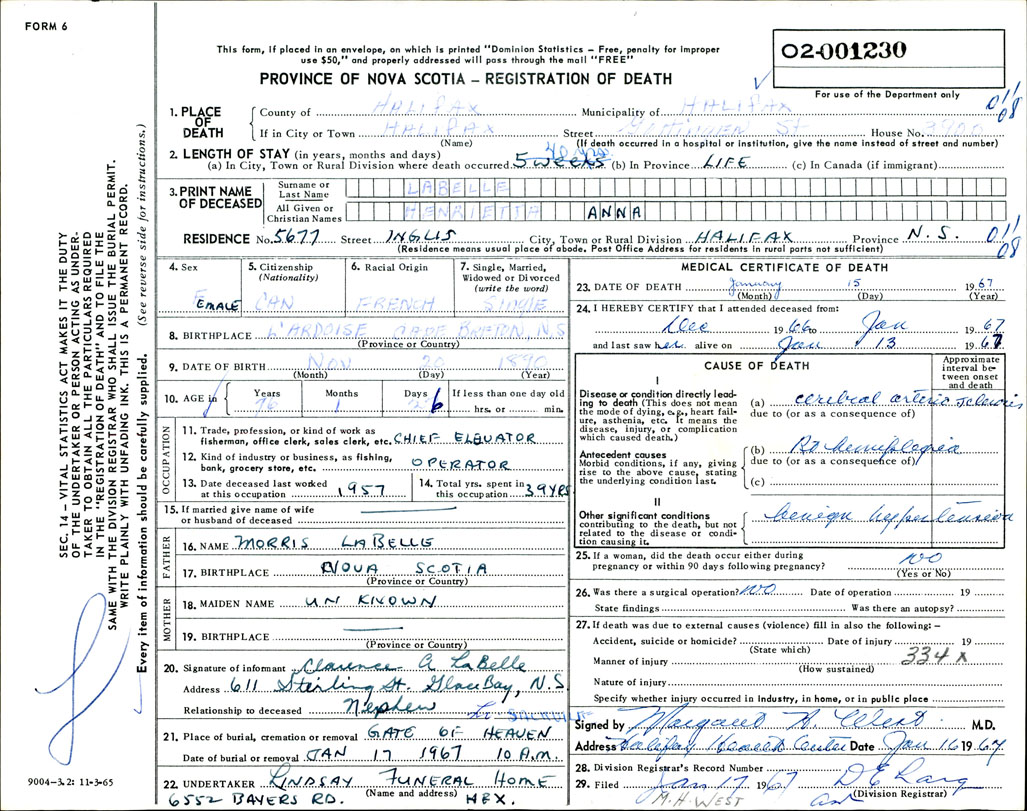 FORM 6
This form, if placed in an envelope, on which is printed "Dominion Statistics – Free, penalty for improper
use $50," and properly addressed will pass through the mail "FREE"
PROVINCE OF NOVA SCOTIA – REGISTRATION OF DEATH
02-001230
For use of the Department only
011
08
1. PLACE OF DEATH
County of HALIFAX Municipality of HALIFAX
If in City or Town HALIFAX Street GOTTINGEN St House No. 3900
(Name) (If death occurred in a hospital or institution, give the name instead of street and number)
40 yrs
2. LENGTH OF STAY (in years, months and days)
(a) In City, Town or Rural Division where death occurred 5 weeks (b) In Province LIFE (c) In Canada (if immigrant)
3. PRINT NAME OF DECEASED
Surname or Last Name LABELLE
All Given or Christian Names HENRIETTA ANNA
RESIDENCE No. 5677 Street INGLIS City, Town or Rural Division HALIFAX Province N.S. 011
08
(Residence means usual place of abode. Post Office Address for residents in rural parts not sufficient)
4. Sex FEMALE
5. Citizenship (Nationality) CAN
6. Racial Origin FRENCH
7. Single, Married, Widowed or Divorced (write the word) SINGLE
8. BIRTHPLACE L'ARDOISE CAPE BRETON, N.S
(Province or Country)
9. DATE OF BIRTH NOV 20 1890
(Month) (Day) (Year)
10. AGE in Years 76 Months 1 Days 26 If less than one day old
hrs. or min.
OCCUPATION
11. Trade, profession, or kind of work as fisherman, office clerk, sales clerk, etc. CHIEF ELEVATOR
12. Kind of industry or business, as fishing, bank, grocery store, etc. OPERATOR
13. Date deceased last worked at this occupation 1957
14. Total yrs. spent in this occupation 39 YRS
15. If married give name of wife or husband of deceased
FATHER
16. NAME MORRIS LABELLE
17. BIRTHPLACE NOVA SCOTIA
(Province or Country)
MOTHER
18. MAIDEN NAME UNKNOWN
19. BIRTHPLACE
(Province or Country)
20. Signature of informant Clarence A LaBelle
Address 611 Sterling St. Glace Bay, N.S
Relationship to deceased Nephew
Lr. SACKVILLE
21. Place of burial, cremation or removal GATE OF HEAVEN
Date of burial or removal JAN 17 1967 10 A.M.
22. UNDERTAKER LINDSAY FUNERAL HOME
(Name and address)
6552 BAYERS RD. HFX.
MEDICAL CERTIFICATE OF DEATH
23. DATE OF DEATH January 15 1967
(Month) (Day) (Year)
24. I HEREBY CERTIFY that I attended deceased from:
Dec 1966 to Jan 1967
and last saw her alive on Jan 13 1967
CAUSE OF DEATH
Approximate interval between onset and death
I
Disease or condition directly leading to death (This does not mean the mode of dying, e.g., heart failure, asthenia, etc. It means the disease, injury, or complication which caused death.)
(a) cerebral arterio sclerosis
due to (or as a consequence of)
Antecedent causes
Morbid conditions, if any, giving rise to the above cause, stating the underlying condition last.
(b) Rt hemiplegia
due to (or as a consequence of)
(c)
II
Other significant conditions contributing to the death, but not related to the disease or condition causing it.
benign hypertension
25. If a woman, did the death occur either during pregnancy or within 90 days following pregnancy? NO
(Yes or No)
26. Was there a surgical operation? NO Date of operation 19
State findings Was there an autopsy?
27. If death was due to external causes (violence) fill in also the following: –
Accident, suicide or homicide? Date of injury 19
(State which)
334 X
Manner of injury
(How sustained)
Nature of injury
Specify whether injury occurred in Industry, in home, or in public place
Signed by Margaret H M.D.
Address Halifax Health Center Date Jan 16 1967
28. Division Registrar's Record Number
29. Filed Jan 17 1967 D E Lang
M.H. WEST (Division Registrar)
SEC. 14 – VITAL STATISTICS ACT MAKES IT THE DUTY
OF THE UNDERTAKER OR PERSON ACTING AS UNDER-
TAKER TO OBTAIN ALL THE PARTICULARS REQUIRED
IN THE "REGISTRATION OF DEATH" AND TO FILE THE
SAME WITH THE DIVISION REGISTRAR WHO SHALL ISSUE THE BURIAL PERMIT.
WRITE PLAINLY WITH UNFADING INK. THIS IS A PERMANENT RECORD.
Every item of information should be carefully supplied. (See reverse side for instructions.)
9004-3.2: 11-3-65